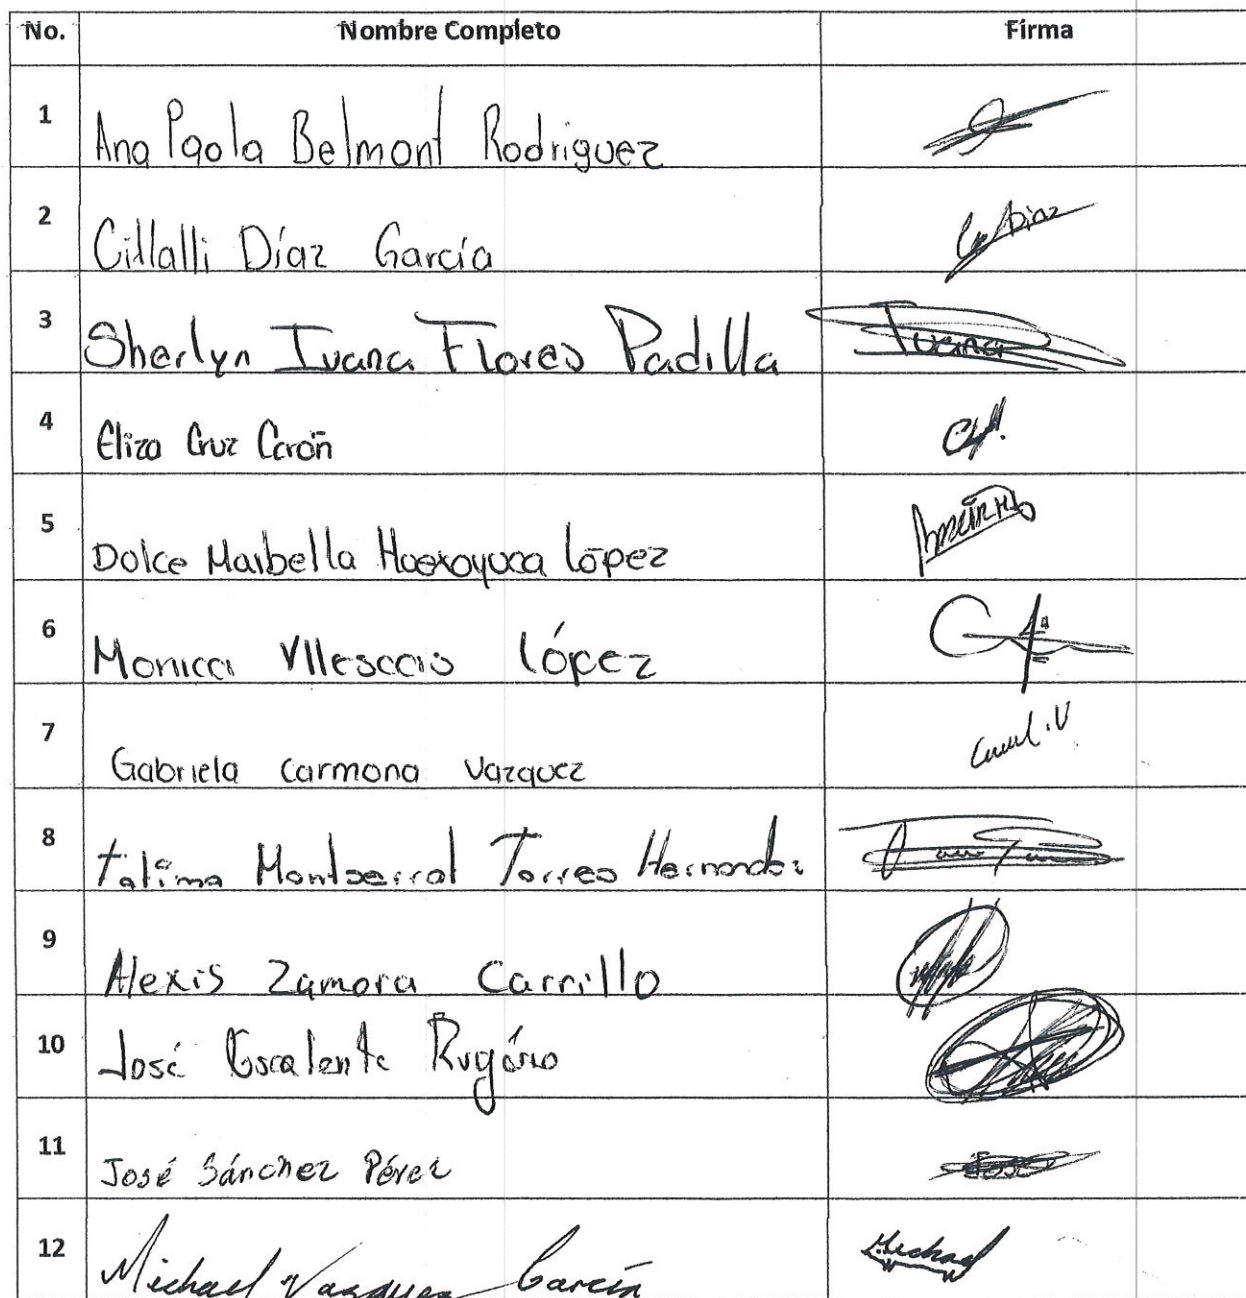 No. Nombre Completo Firma
1 Ana Paola Belmont Rodriguez
2 Citlalli Díaz García Diaz
3 Sherlyn Ivana Flores Padilla Ivana
4 Eliza Cruz Cerón
5 Dolce Maibella López
6 Monica Villescas López
7 Gabriela Carmona Vazquez
8 Fatima Montserrat Torres Hernandez
9 Alexis Zamora Carrillo
10 José Escalente
11 José Sánchez Pérez José
12 Michael Vazquez García Michael